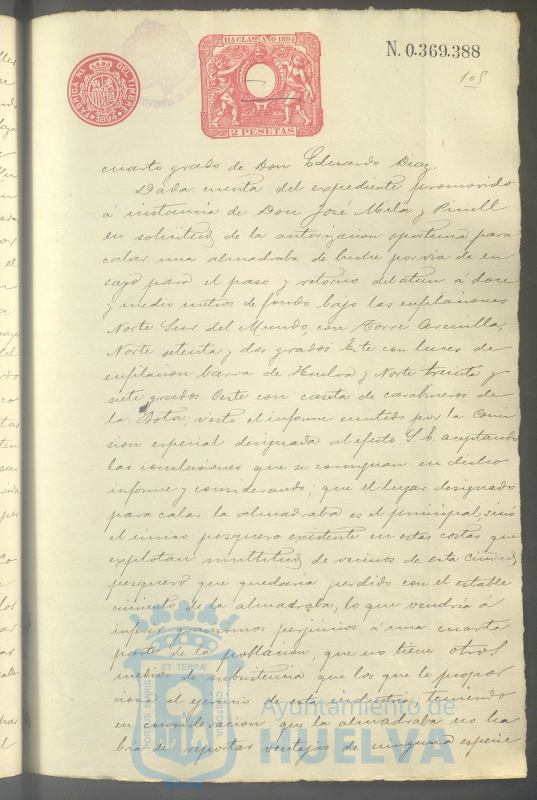 11ª CLASE AÑO 1894
2 PESETAS
FÁBRICA NL. DEL TIMBRE
1894
N. 0.369.388
105
cuarto grado de Don Eduardo Diaz.
Dada cuenta del expediente promovido
á instancia de Don José Mila y Pinell
en solicitud de la autorizacion oportuna para
calar una almadraba de buche por via de en
sayo para el paso y retorno del atun á doce
y medio metros de fondo bajo las enfilaciones
Norte Sur del Mundo, con Torre Arenilla,
Norte setenta y dos grados Este con luces de
enfilacion barra de Huelva y Norte treinta y
siete grados Oeste con caseta de carabineros de
la Bota; visto el informe emitido por la Comi
sion especial designada al efecto S. E. aceptando
las conclusiones que se consignan en dicho
informe y considerando; que el lugar designado
para calar la almadraba es el principal, sinó
el único pesquero existente en estas costas que
explotan multitud de vecinos de esta Ciudad,
pesquero que quedaria perdido con el estable
cimiento de la almadraba, lo que vendria á
inferir gravisimos perjuicios á una cuarta
parte de la poblacion, que no tiene otros
medios de subsistencia que los que le propor
ciona el ejercicio de esta industria; teniendo
en consideracion que la almadraba no ha
bra de reportar ventajas de ninguna especie
PORTUS MARIS ET TERRÆ CUSTODIA
Ayuntamiento de
HUELVA